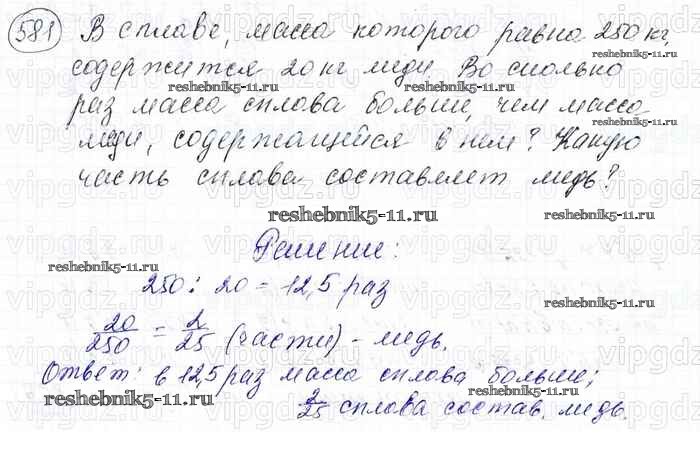 581 В сплаве, масса которого равна 250 кг,
содержится 20 кг меди. Во сколько
раз масса сплава больше, чем масса
меди, содержащейся в нем? Какую
часть сплава составляет медь?
reshebnik5-11.ru
Решение:
250 : 20 = 12,5 раз
20/250 = 2/25 (части) - медь.
Ответ: в 12,5 раз масса сплава больше;
2/25 сплава состав. медь.
reshebnik5-11.ru
reshebnik5-11.ru
reshebnik5-11.ru
reshebnik5-11.ru
reshebnik5-11.ru
vipgdz.ru